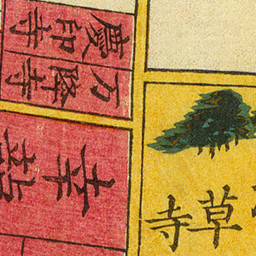 慶印寺
万隆寺
幸龍
草寺